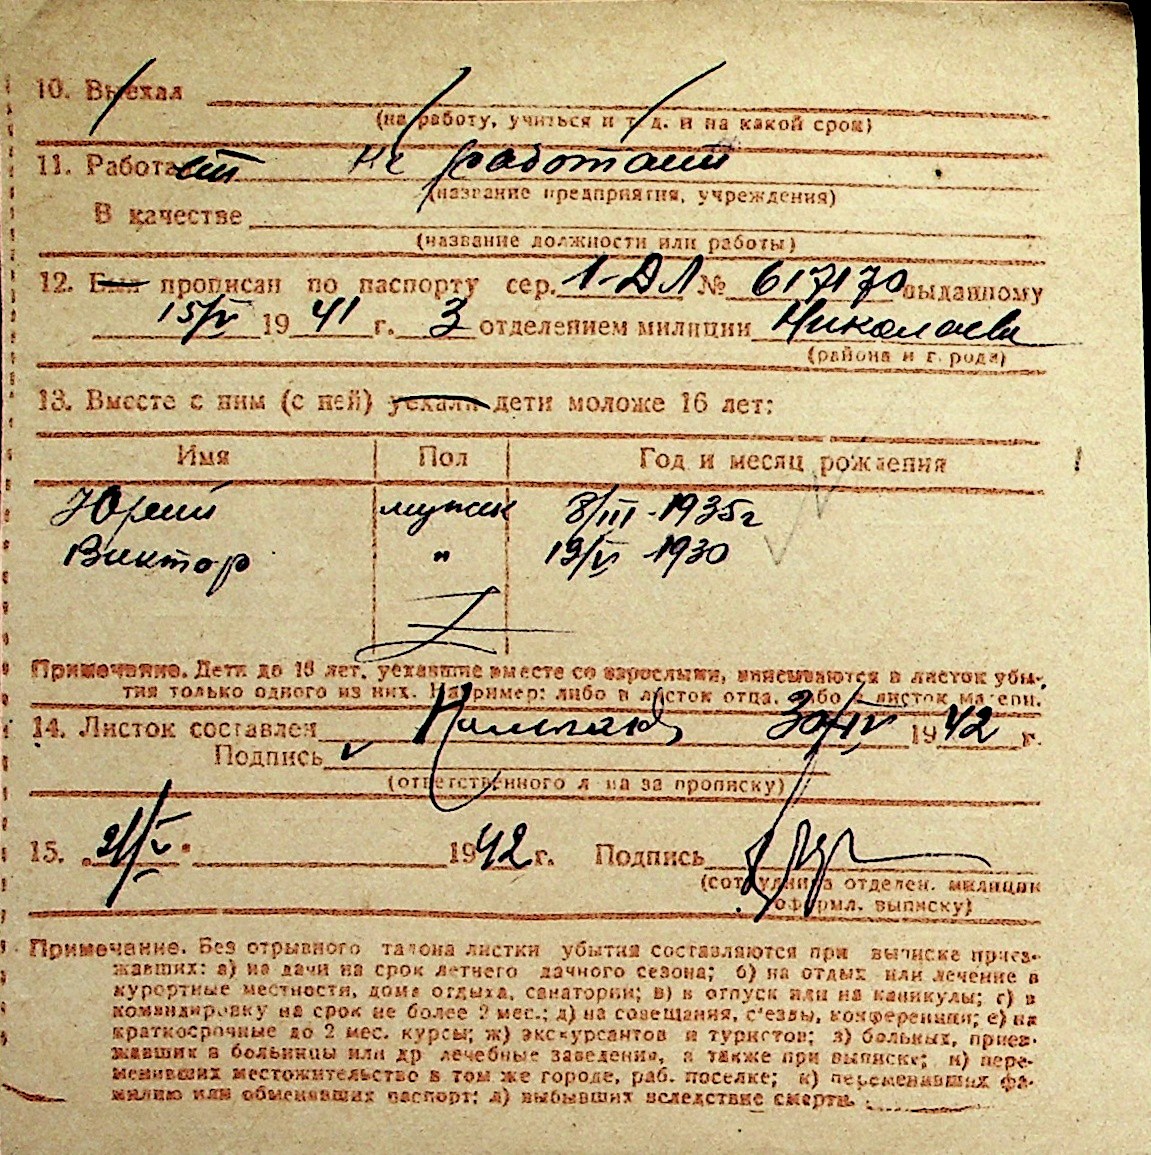 10. Выехал
(на работу, учиться и т. д. и на какой срок)
11. Работает не работает
(название предприятия, учреждения)
В качестве
(название должности или работы)
12. Был прописан по паспорту сер. 1-ДЛ № 617170 выданному
15/V 1941 г. 3 отделением милиции Николаева
(района и г. рода)
13. Вместе с ним (с ней) уехали дети моложе 16 лет:
Имя Пол Год и месяц рождения
Юрий мужск 8/III-1935г
Виктор " 19/VI 1930
Примечание. Дети до 16 лет, уехавшие вместе со взрослыми, вписываются в листок убы-
тия только одного из них. Например: либо в листок отца, либо в листок матери.
14. Листок составлен 30/IV 1942 г.
Подпись
(ответственного л-ца за прописку)
15. 21/V 1942 г. Подпись
(сотрудника отделен. милиции
оформл. выписку)
Примечание. Без отрывного талона листки убытия составляются при выписке приез-
жавших: а) на дачи на срок летнего дачного сезона; б) на отдых или лечение в
курортные местности, дома отдыха, санатории; в) в отпуск или на каникулы; г) в
командировку на срок не более 2 мес.; д) на совещания, с'езды, конференции; е) на
краткосрочные до 2 мес. курсы; ж) экскурсантов и туристов; з) больных, приез-
жавших в больницы или др лечебные заведения, а также при выписке; и) пере-
менивших местожительство в том же городе, раб. поселке; к) переменивших фа-
милию или обменявших паспорт; л) выбывших вследствие смерти.